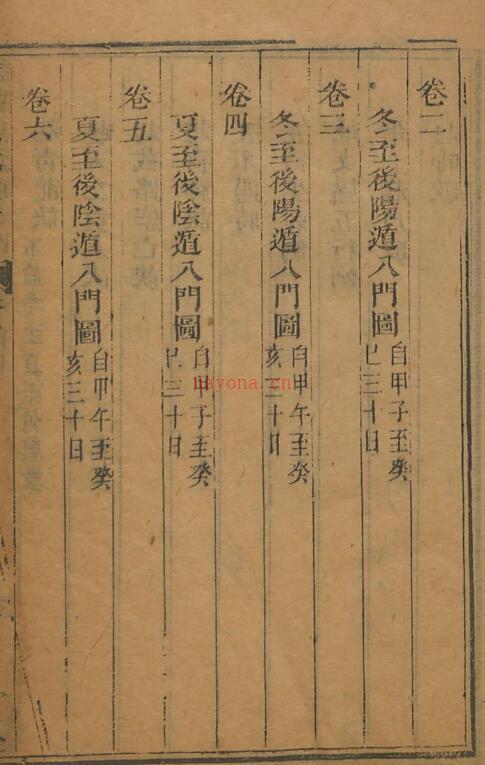 卷二
冬至後陽遁八門圖 自甲子至癸巳三十日
卷三
冬至後陽遁八門圖 自甲午至癸亥三十日
卷四
夏至後陰遁八門圖 自甲子至癸巳三十日
卷五
夏至後陰遁八門圖 自甲午至癸亥三十日
卷六
nayona.cn